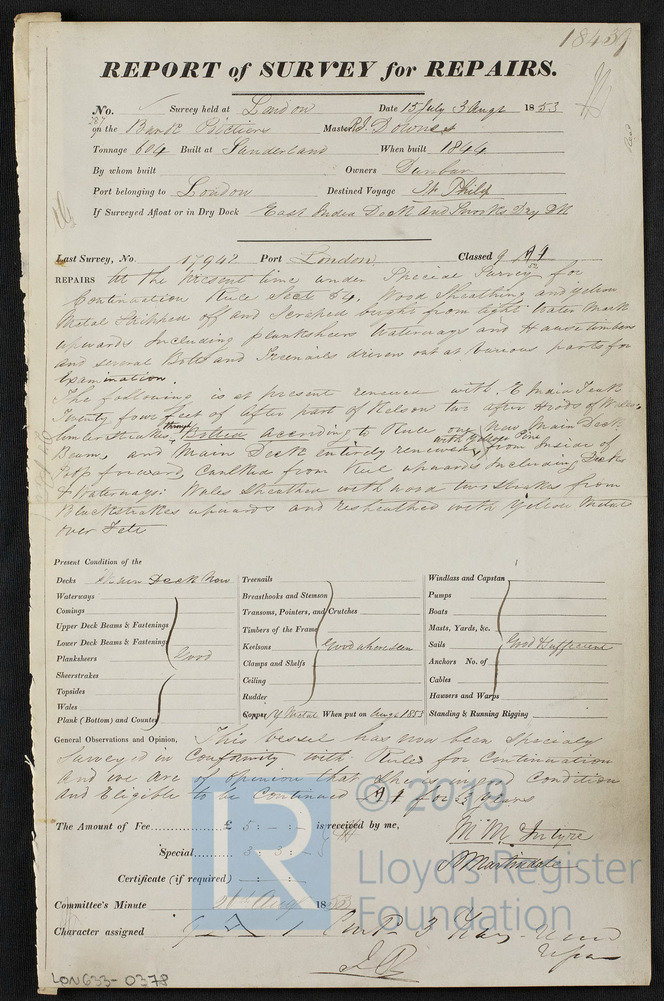 REPORT of SURVEY for REPAIRS.
No. Survey held at London Date 15 July 3 Augt 1853
on the Bark Master Downes
Tonnage 604 Built at Sunderland When built 1844
By whom built Owners Dunbar
Port belonging to London Destined Voyage
If Surveyed Afloat or in Dry Dock East India Dock and Dry Dk
Last Survey, No. 17942 Port London Classed 9 A1
REPAIRS At the present time under Special Survey for
Continuation Rule Sect 54. Wood Sheathing and yellow
Metal Stripped off and Scraped bright from light Water Mark
upwards including plankshears Waterways and timbers
and several Bolts and Treenails driven out at various parts for
Examination.
The following is at present renewed with E India Teak
Twenty four feet of after part of Kelson two after Hoods of
through
Bolted according to Rule New Main Deck
with yellow Pine
Beam, and Main Deck entirely renewed from inside of
Poop forward, Caulked from Keel upwards including Decks
& Waterways: Wales Sheathed with wood two Strakes from
Blackstrakes upwards and resheathed with Yellow Metal
over Felt
Present Condition of the
Decks Main Deck New
Waterways
Comings
Upper Deck Beams & Fastenings
Lower Deck Beams & Fastenings
Planksheers
Sheerstrakes
Topsides
Wales
Plank (Bottom) and Counter
Good
Treenails
Breasthooks and Stemson
Transoms, Pointers, and Crutches
Timbers of the Frame
Keelsons
Clamps and Shelfs
Ceiling
Rudder
Copper Y Metal When put on Augt 1853
Good where seen
Windlass and Capstan
Pumps
Boats
Masts, Yards, &c.
Sails
Anchors No. of
Cables
Hawsers and Warps
Standing & Running Rigging
Good & Sufficient
General Observations and Opinion, This vessel has now been Specialy
Surveyed in Conformity with Rules for Continuation
And we are of opinion that She is in good Condition
And Eligible to be Continued A 1 for 3 years
The Amount of Fee £ 5 : - : - is received by me,
Special 3 : 3 : -
Certificate (if required) - : - : -
M Intyre
Martindale
Committee's Minute Augt 1853
Character assigned
LON633-0378
© 2019
Lloyd's Register
Foundation